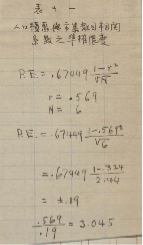 表十一
人口積集與方案数目相関
系数之準確限度
P.E. = .67449 1-r²/√N
r = .569
N = 6
P.E. = .67449 1-.569²/√6
= .67449 1-.324/2.44
= ±.19
.569/.19 = 3.045